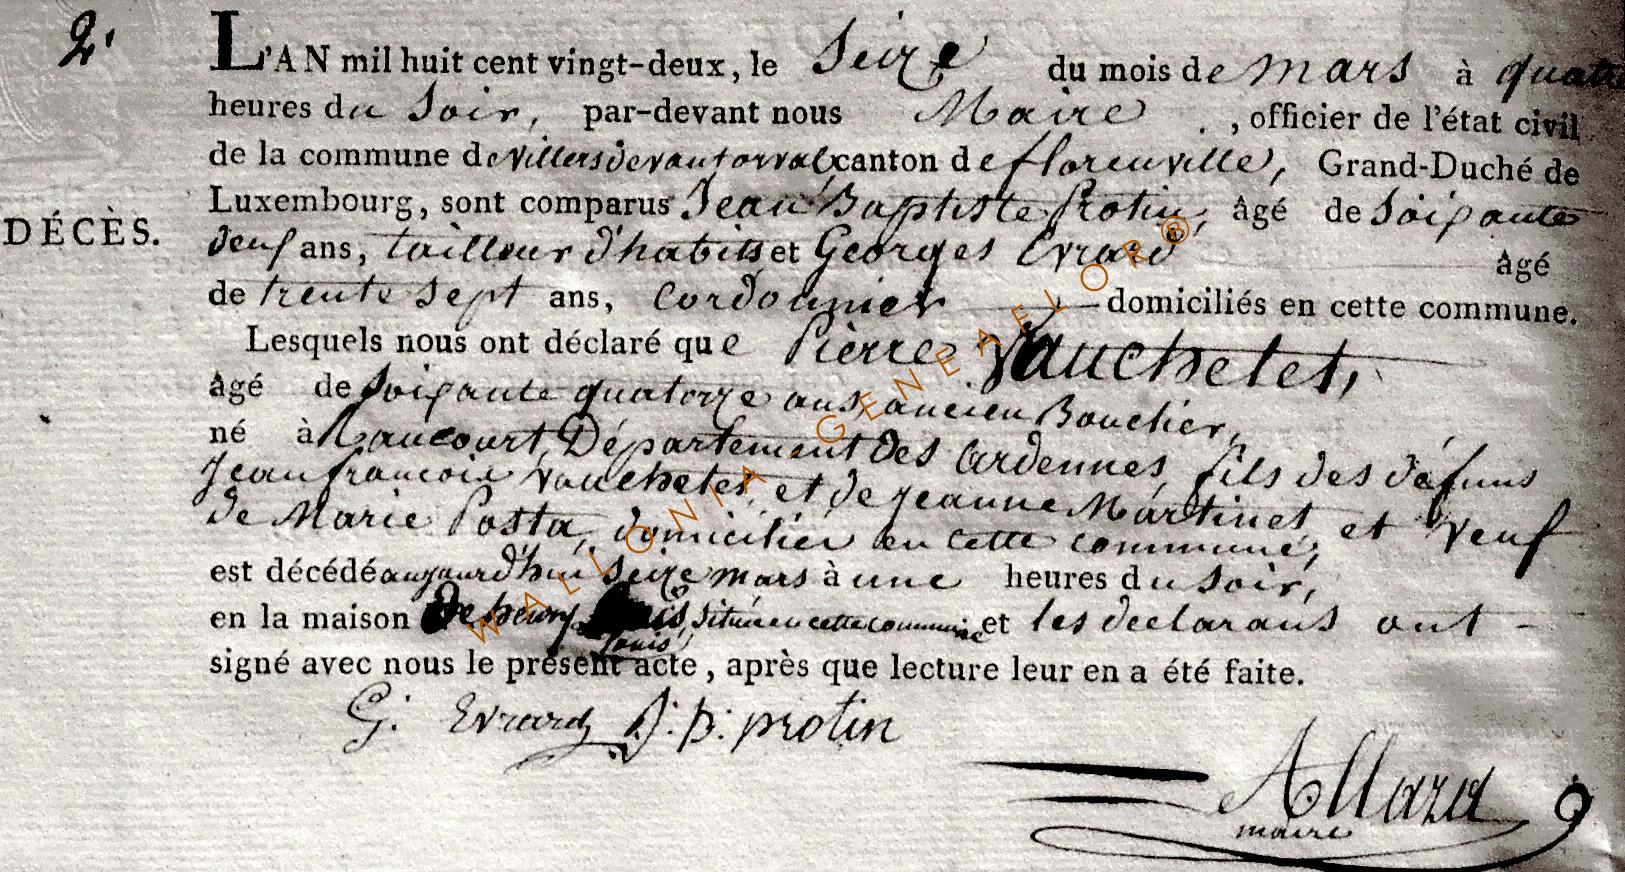 2.
L'AN mil huit cent vingt-deux, le Seize du mois de mars à quatre
heures du Soir, par-devant nous Maire , officier de l'état civil
de la commune de villers devant orval canton de florenville, Grand-Duché de
Luxembourg, sont comparus Jean Baptiste Protin, âgé de Soixante
DÉCÈS.
deux ans, tailleur d'habits et Georges Evrard âgé
de trente Sept ans, Cordonnier domiciliés en cette commune.
Lesquels nous ont déclaré que Pierre Vauchelet,
âgé de Soixante quatorze ans, ancien Boucher,
né à Raucourt, Département des Ardennes, fils des défuns
Jean francois Vauchelet, et de jeanne Martinet, et Veuf
de Marie Posta, domicilier en cette commune,
est décédé aujourd'hui Seize mars à une heures du Soir,
en la maison de henry Située en cette commune et les declarans ont
Louis
signé avec nous le présent acte, après que lecture leur en a été faite.
G. Evrard J: B: protin
Allard
maire
WALLONIA - GENEAFLOR®